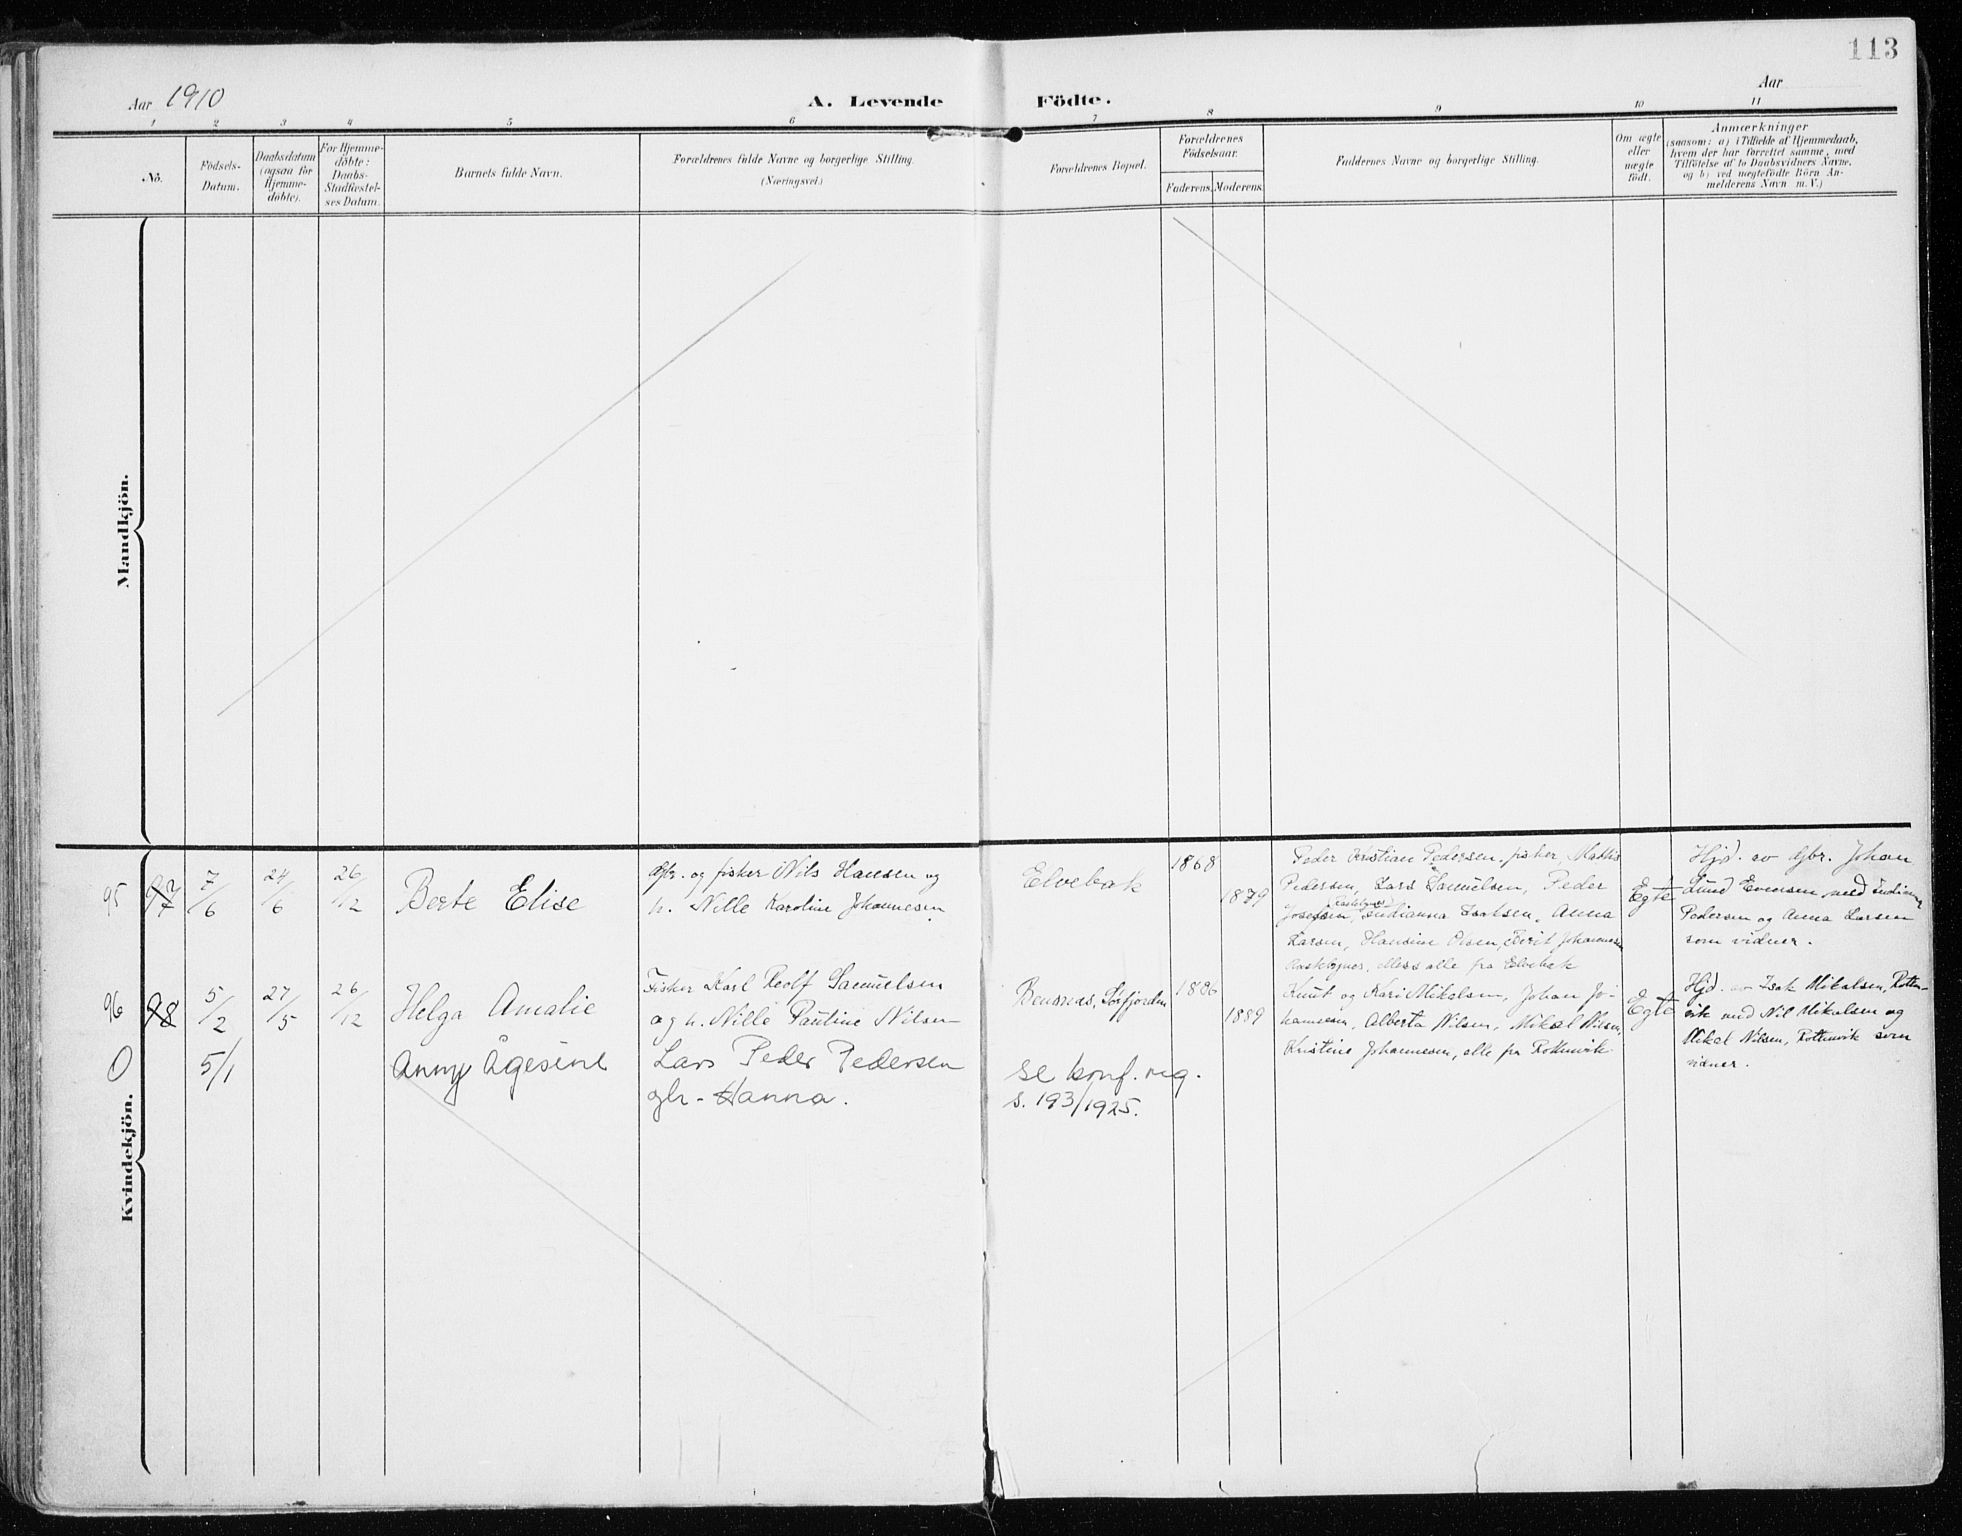 113
Aar 1910
A. Levende Födte.
Aar
1 2 3 4 5 6 7 8 9 10 11
No.
Födsels-
Datum.
Daabsdatum
(ogsaa for
Hjemme-
döbte).
For Hjemme-
döbte:
Daabs-
Stadfæstel-
ses Datum.
Barnets fulde Navn.
Forældrenes fulde Navne og borgerlige Stilling.
(Næringsvei.)
Forældrenes Bopæl.
Forældrenes
Födselsaar.
Faderens. Moderens.
Faddernes Navne og borgerlige Stilling.
Om ægte
eller
uægte
födt.
Anmærkninger
(saasom: a) i Tilfælde af Hjemmedaab,
hvem der har forrettet samme, med
Tilföielse af to Daabsvidners Navne,
og b) ved uægtefödte Börn An-
melderens Navn m. V.)
Mandkjön.
Kvindekjön.
95 97 7/6 24/6 26/12
Berte Elise
Gbr. og fisker Nils Hansen og
h. Nille Karoline Johannesen
Elvebak
1868
1879
Peder Kristian Pedersen, fisker, Mathis
Pedersen, Lars Samuelsen, Peder
Josefsen, Indianna Isaksen, Anna
Larsen, Hansine Olsen, Berit Johannesen
Raskbynes, ellers alle fra Elvebak
Egte
Hjd. av gbr. Johan
Lund Evensen med Indianna
Pedersen og Anna Larsen
som vidner.
96 98 5/2 27/5 26/12
Helga Amalie
Fisker Karl Rolf Samuelsen
og h. Nille Pauline Nilsen
Bensnes, Sørfjorden
1886
1889
Knut og Kari Mikalsen, Johan Jo-
hannesen, Alberta Nilsen, Mikal Nilsen,
Kristine Johannesen, alle fra Rottenvik
Egte
Hjd. av Isak Mikalsen, Rotten-
vik med Nil Mikalsen og
Mikal Nilsen, Rottenvik som
vidner.
0 5/1
Anny Ågesine
Lars Peder Pedersen
gbr - Hanna.
se konf. reg.
s. 193/1925.